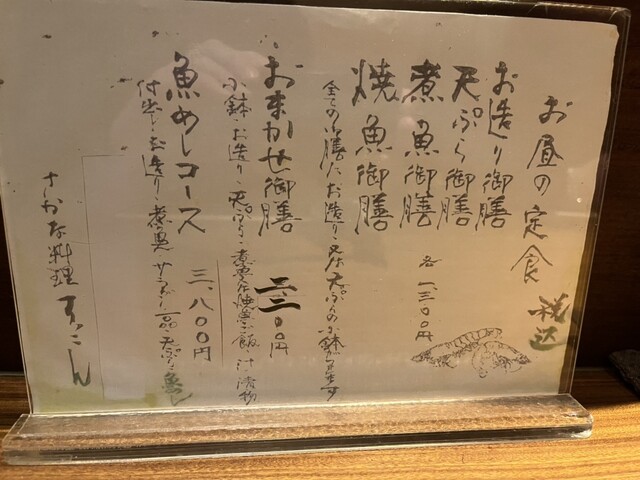 お昼の定食 税込
お造り御膳
天ぷら御膳
煮魚御膳
焼魚御膳
各 一、三〇〇円
全ての御膳にお造り又は天ぷらの小鉢がつきます
おまかせ御膳 二、二〇〇円
小鉢・お造り・天ぷら・煮魚又は焼魚・ご飯・汁・漬物
魚めしコース 三、八〇〇円
付出し・お造り・煮魚・サラダ・一品・天ぷら・魚めし
さかな料理